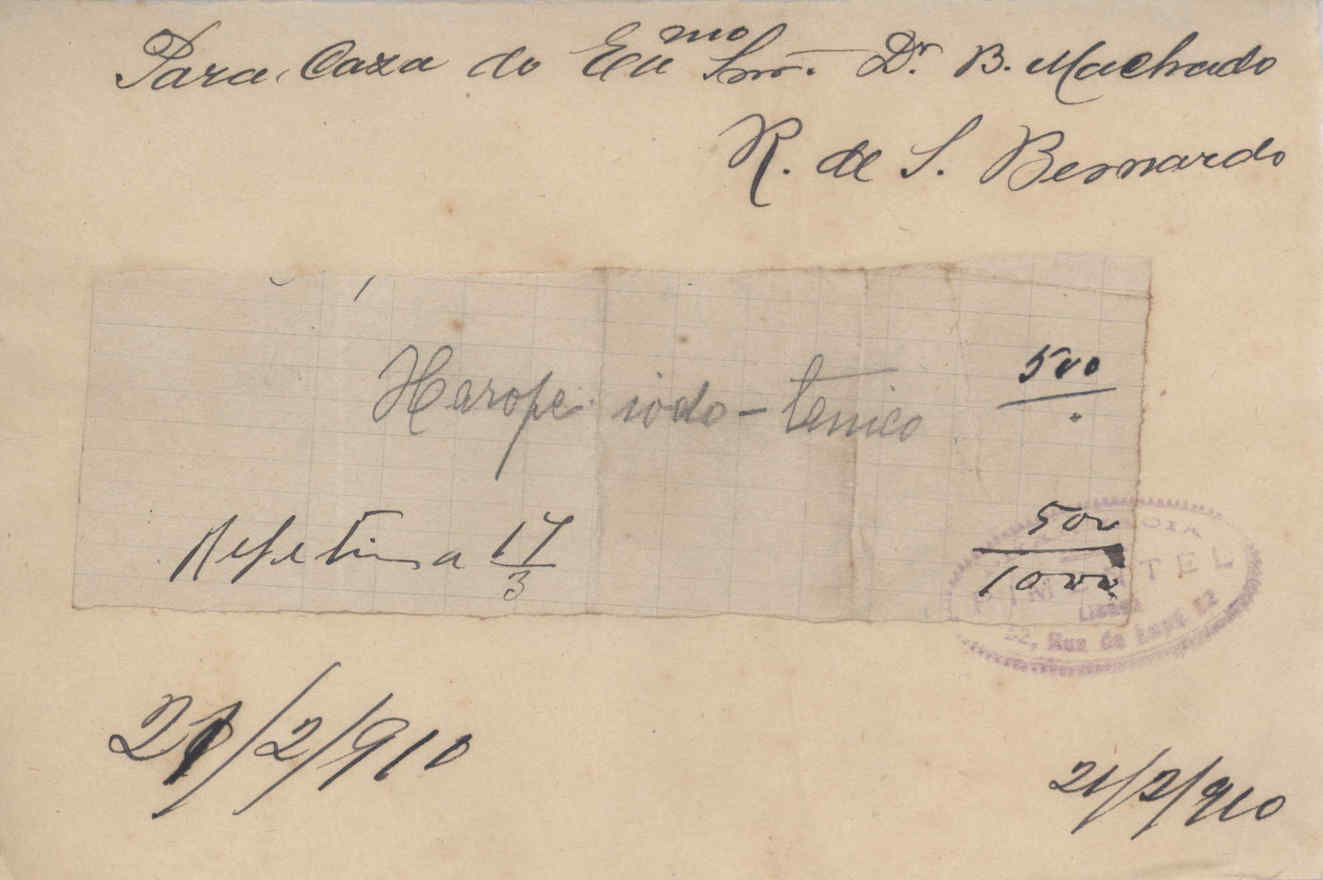 Para Caza do Exmo Snr. Dr. B. Machado
R. de S. Bernardo
Xarope iodo-tanico 500
Repetiu a 17/3 500
1000
PIMENTEL
Lisboa
21/2/910
21/2/910